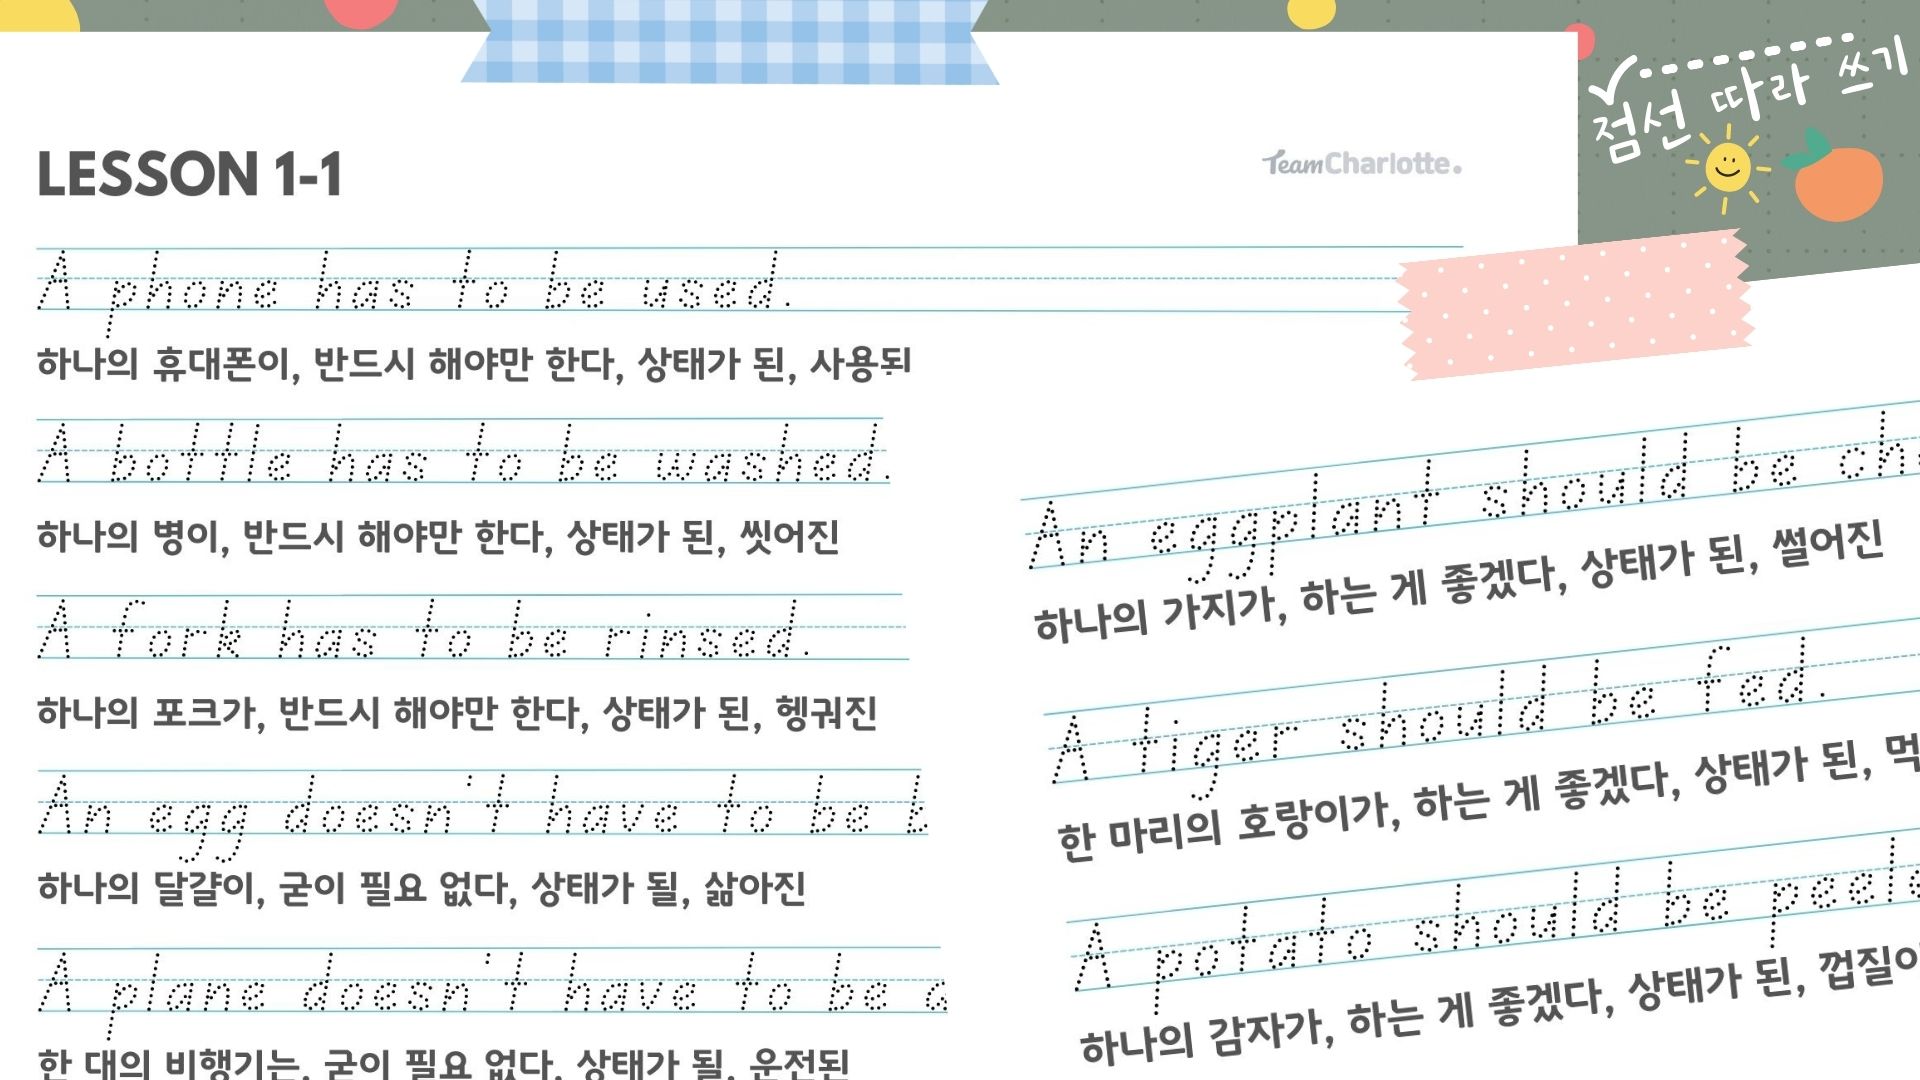 점선 따라 쓰기
LESSON 1-1
TeamCharlotte.
A phone has to be used.
하나의 휴대폰이, 반드시 해야만 한다, 상태가 된,
A bottle has to be washed.
하나의 병이, 반드시 해야만 한다, 상태가 된, 씻어진
A fork has to be rinsed.
하나의 포크가, 반드시 해야만 한다, 상태가 된, 헹궈진
An egg doesn't have to be
하나의 달걀이, 굳이 필요 없다, 상태가 될, 삶아진
A plane doesn't have to be
한 대의 비행기는, 굳이 필요 없다, 상태가 될, 운전된
An eggplant should be
하나의 가지가, 하는 게 좋겠다, 상태가 된, 썰어진
A tiger should be fed.
한 마리의 호랑이가, 하는 게 좋겠다, 상태가 된,
A potato should be
하나의 감자가, 하는 게 좋겠다, 상태가 된,